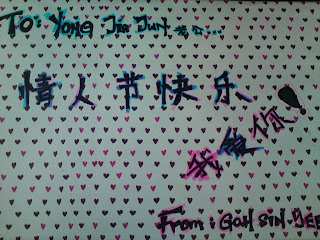 To: Yong Jia Jun 老公...
情人节快乐
我爱你!
From: GOH SIN.YEE